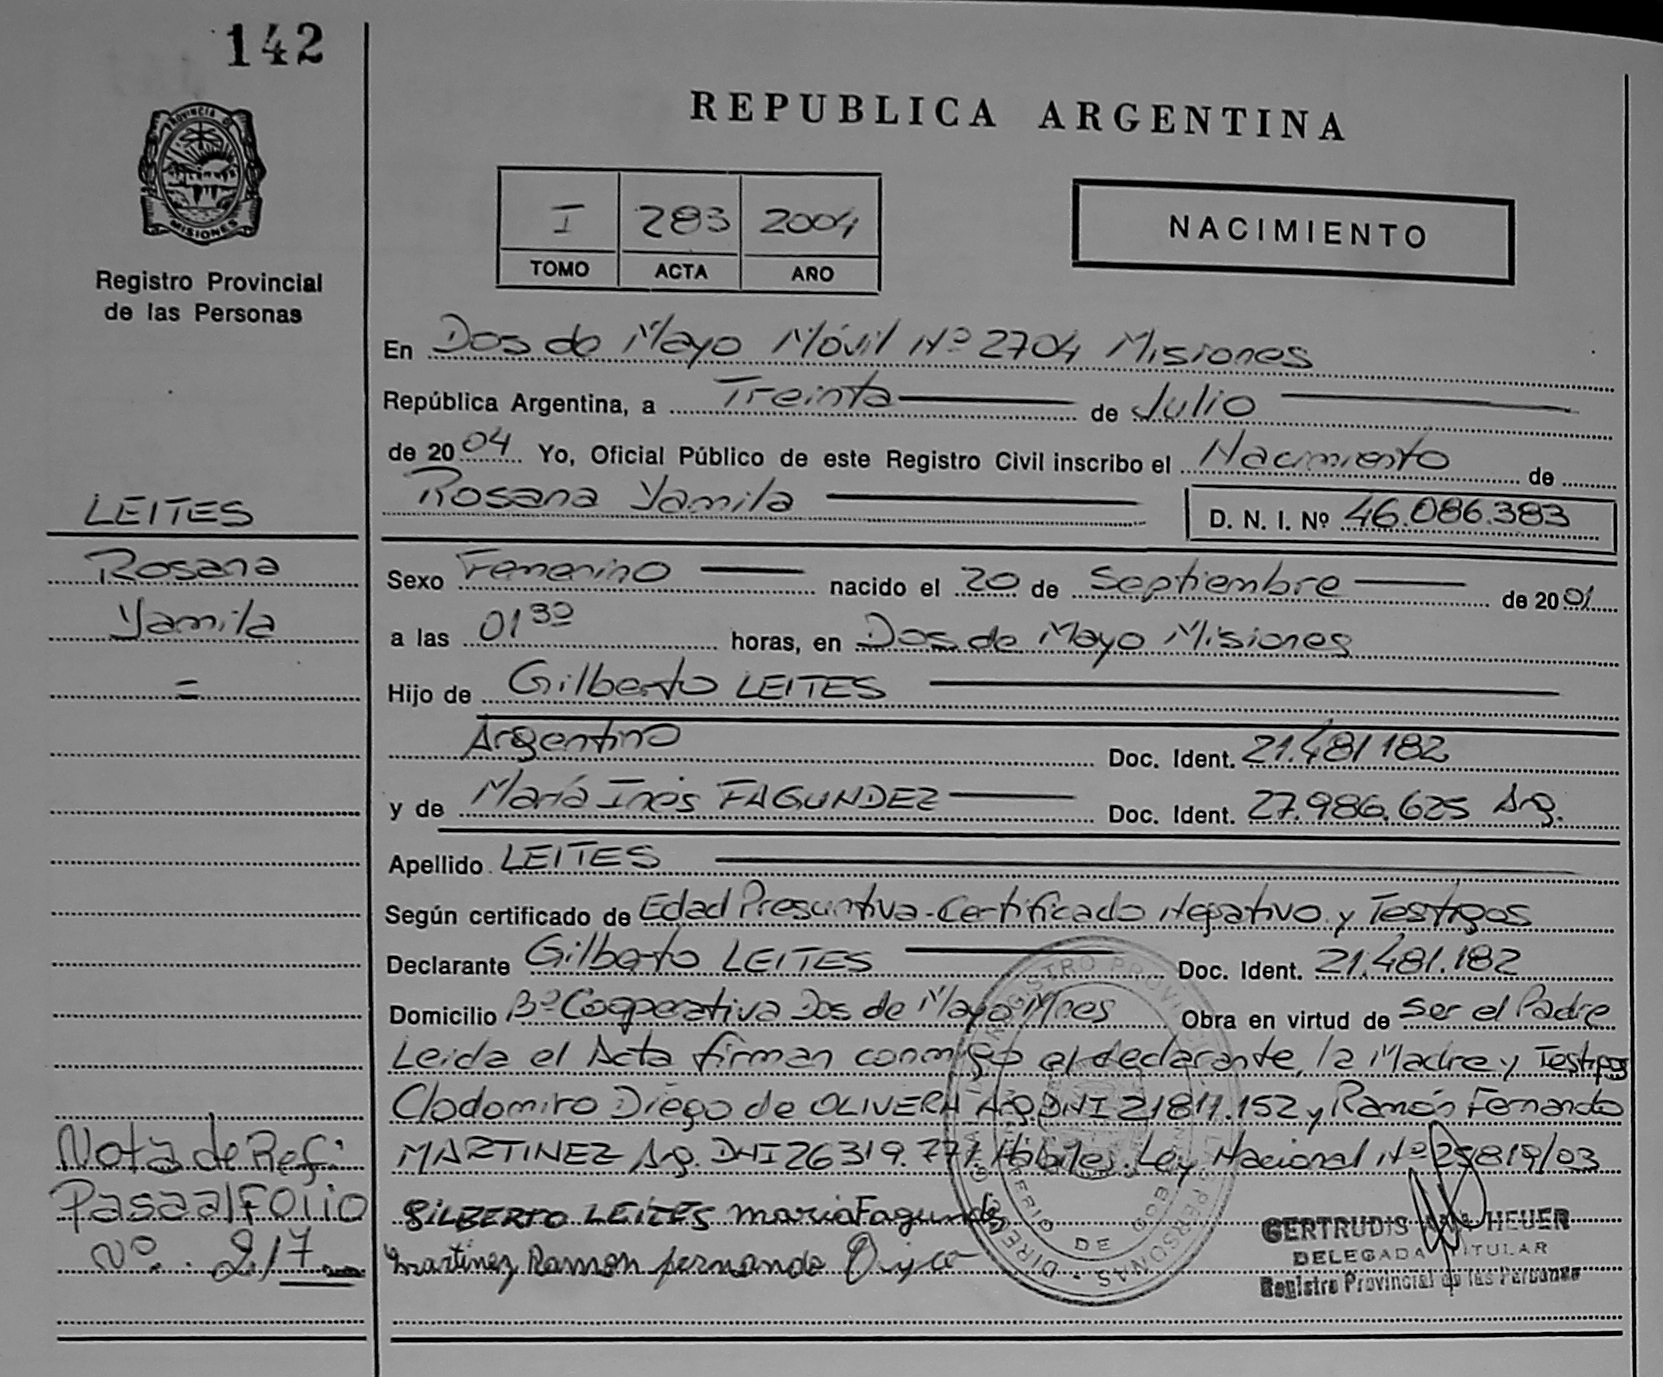 142
PROVINCIA D
MISIONES
Registro Provincial
de las Personas
REPUBLICA ARGENTINA
I 283 2004
TOMO ACTA AÑO
NACIMIENTO
En Dos de Mayo Móvil Nº 2704 Misiones
República Argentina, a Treinta de Julio
de 2004 Yo, Oficial Público de este Registro Civil inscribo el Nacimiento de
Rosana Yamila D. N. I. Nº 46.086.383
LEITES
Rosana
Yamila
=
Sexo Femenino nacido el 20 de Septiembre de 2001
a las 01³⁰ horas, en Dos de Mayo Misiones
Hijo de Gilberto LEITES
Argentino Doc. Ident. 21.481.182
y de María Inés FAGUNDEZ Doc. Ident. 27.986.625 Arg.
Apellido LEITES
Según certificado de Edad Presuntiva-Certificado Negativo y Testigos
Declarante Gilberto LEITES Doc. Ident. 21.481.182
Domicilio Bº Cooperativa Dos de Mayo Mnes Obra en virtud de ser el Padre
Leida el Acta firman conmigo el declarante, la Madre y Testigos
Clodomiro Diego de OLIVERA Arg. DNI 21811.152 y Ramón Fernando
MARTINEZ Arg. DNI 26319.777. Hábiles. Ley Nacional Nº 25819/03
Nota de Ref:
Pasa al Folio
Nº. 217
GILBERTO LEITES maria Fagundez
martinez Ramon fernando
GERTRUDIS HEUER
DELEGADA TITULAR
Registro Provincial de las Personas